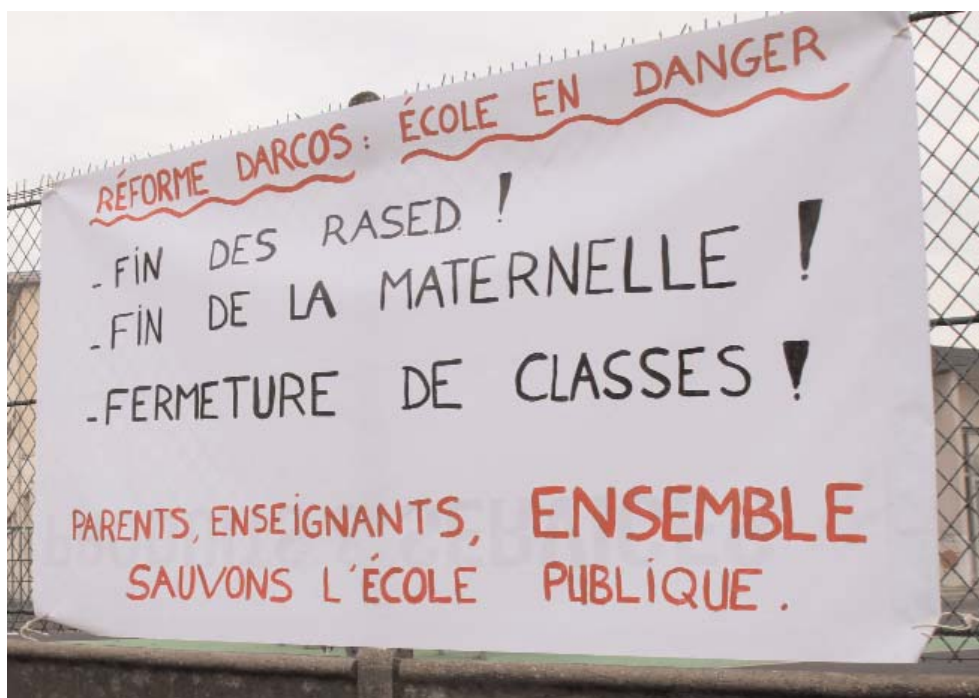 RÉFORME DARCOS : ÉCOLE EN DANGER
- FIN DES RASED !
- FIN DE LA MATERNELLE !
- FERMETURE DE CLASSES !
PARENTS, ENSEIGNANTS, ENSEMBLE
SAUVONS L'ÉCOLE PUBLIQUE.